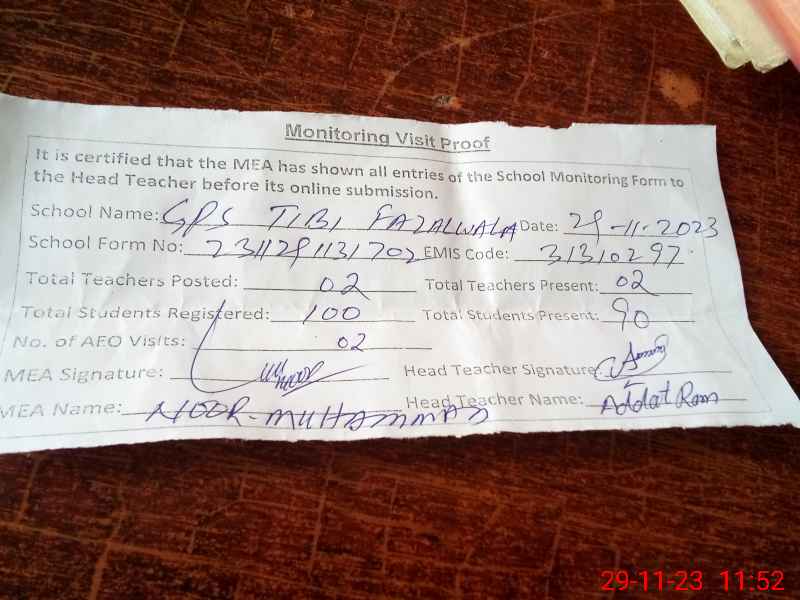 Monitoring Visit Proof
It is certified that the MEA has shown all entries of the School Monitoring Form to
the Head Teacher before its online submission.
School Name: GPS TIBI FAZALWALA Date: 29-11-2023
School Form No: 2311291131702 EMIS Code: 31310297
Total Teachers Posted: 02 Total Teachers Present: 02
Total Students Registered: 100 Total Students Present: 90
No. of AEO Visits: 02
MEA Signature: Head Teacher Signature:
MEA Name: NOOR-MUHAMMAD Head Teacher Name: Addat Ram
29-11-23 11:52